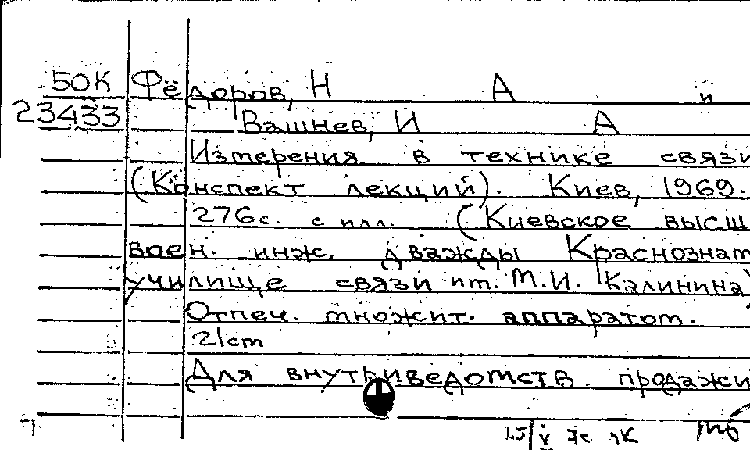 50К Фёдоров, Н А и
23433 Вашнев, И А
Измерения в технике связи
(Конспект лекций). Киев, 1969.
276с. с илл. (Киевское высш
воен. инж. дважды Краснознам
училище связи им. М.И. Калинина)
Отпеч. множит. аппаратом.
21cm
Для внутриведомств. продажи